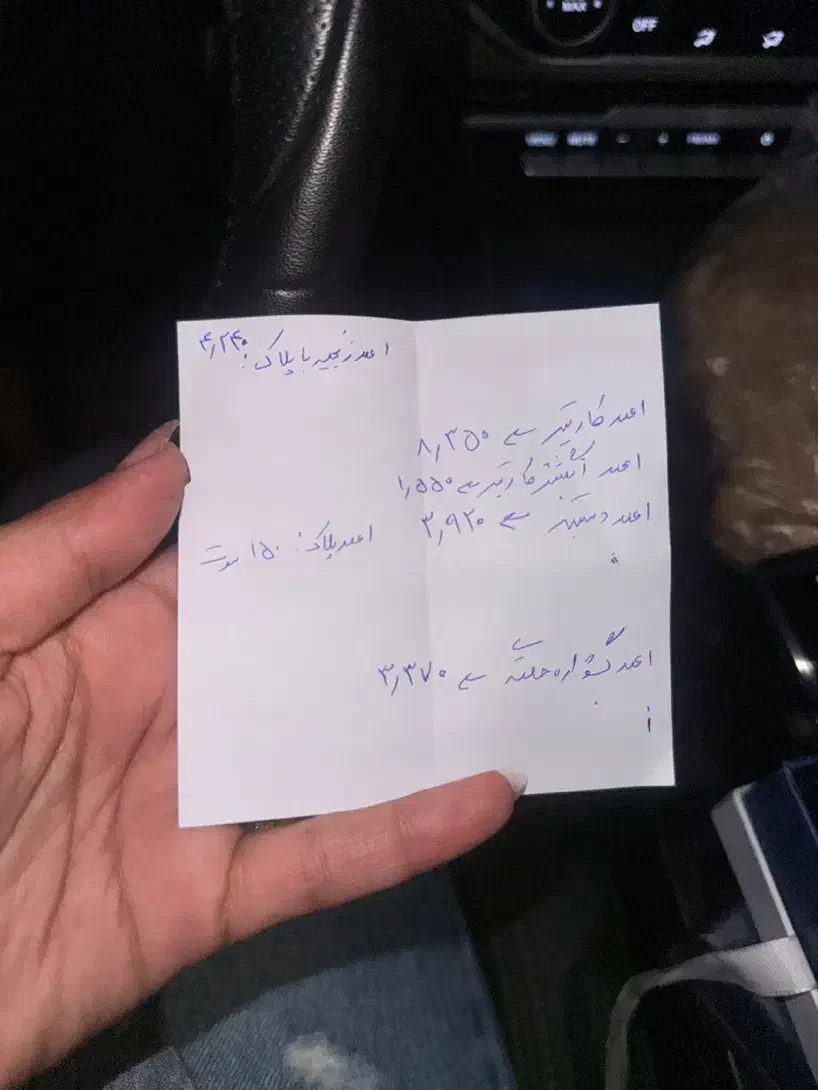 MAX
OFF
۱عدد زنجیر با پلاک: ۴,۲۴۰
۱عدد کارتیر ← ۸,۳۵۰
۱عدد انگشتر کارتیر ← ۱,۵۵۰
۱عدد دستبند ← ۳,۹۲۰
۱عدد پلاک: ۱۵۰ سوت
۱عدد گوشواره حلقه‌ای ← ۳,۳۷۰